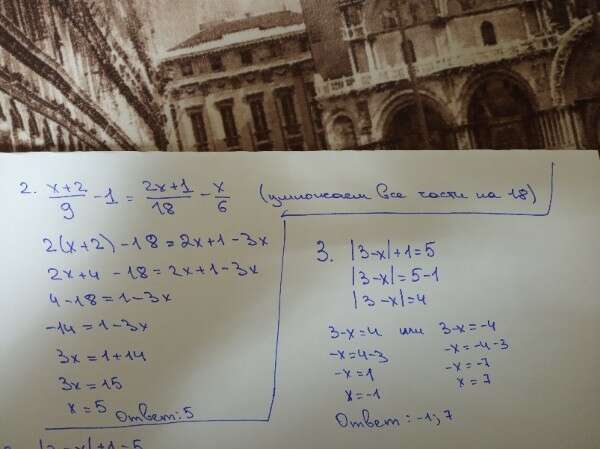 2. (x+2)/9 - 1 = (2x+1)/18 - x/6 (умножаем все части на 18)
2(x+2) - 18 = 2x+1 - 3x
2x+4 - 18 = 2x+1 - 3x
4 - 18 = 1 - 3x
-14 = 1 - 3x
3x = 1 + 14
3x = 15
x = 5
Ответ: 5
3. |3-x| + 1 = 5
|3-x| = 5-1
|3-x| = 4
3-x = 4 или 3-x = -4
-x = 4-3 -x = -4-3
-x = 1 -x = -7
x = -1 x = 7
Ответ: -1; 7
|3-x|+1=5